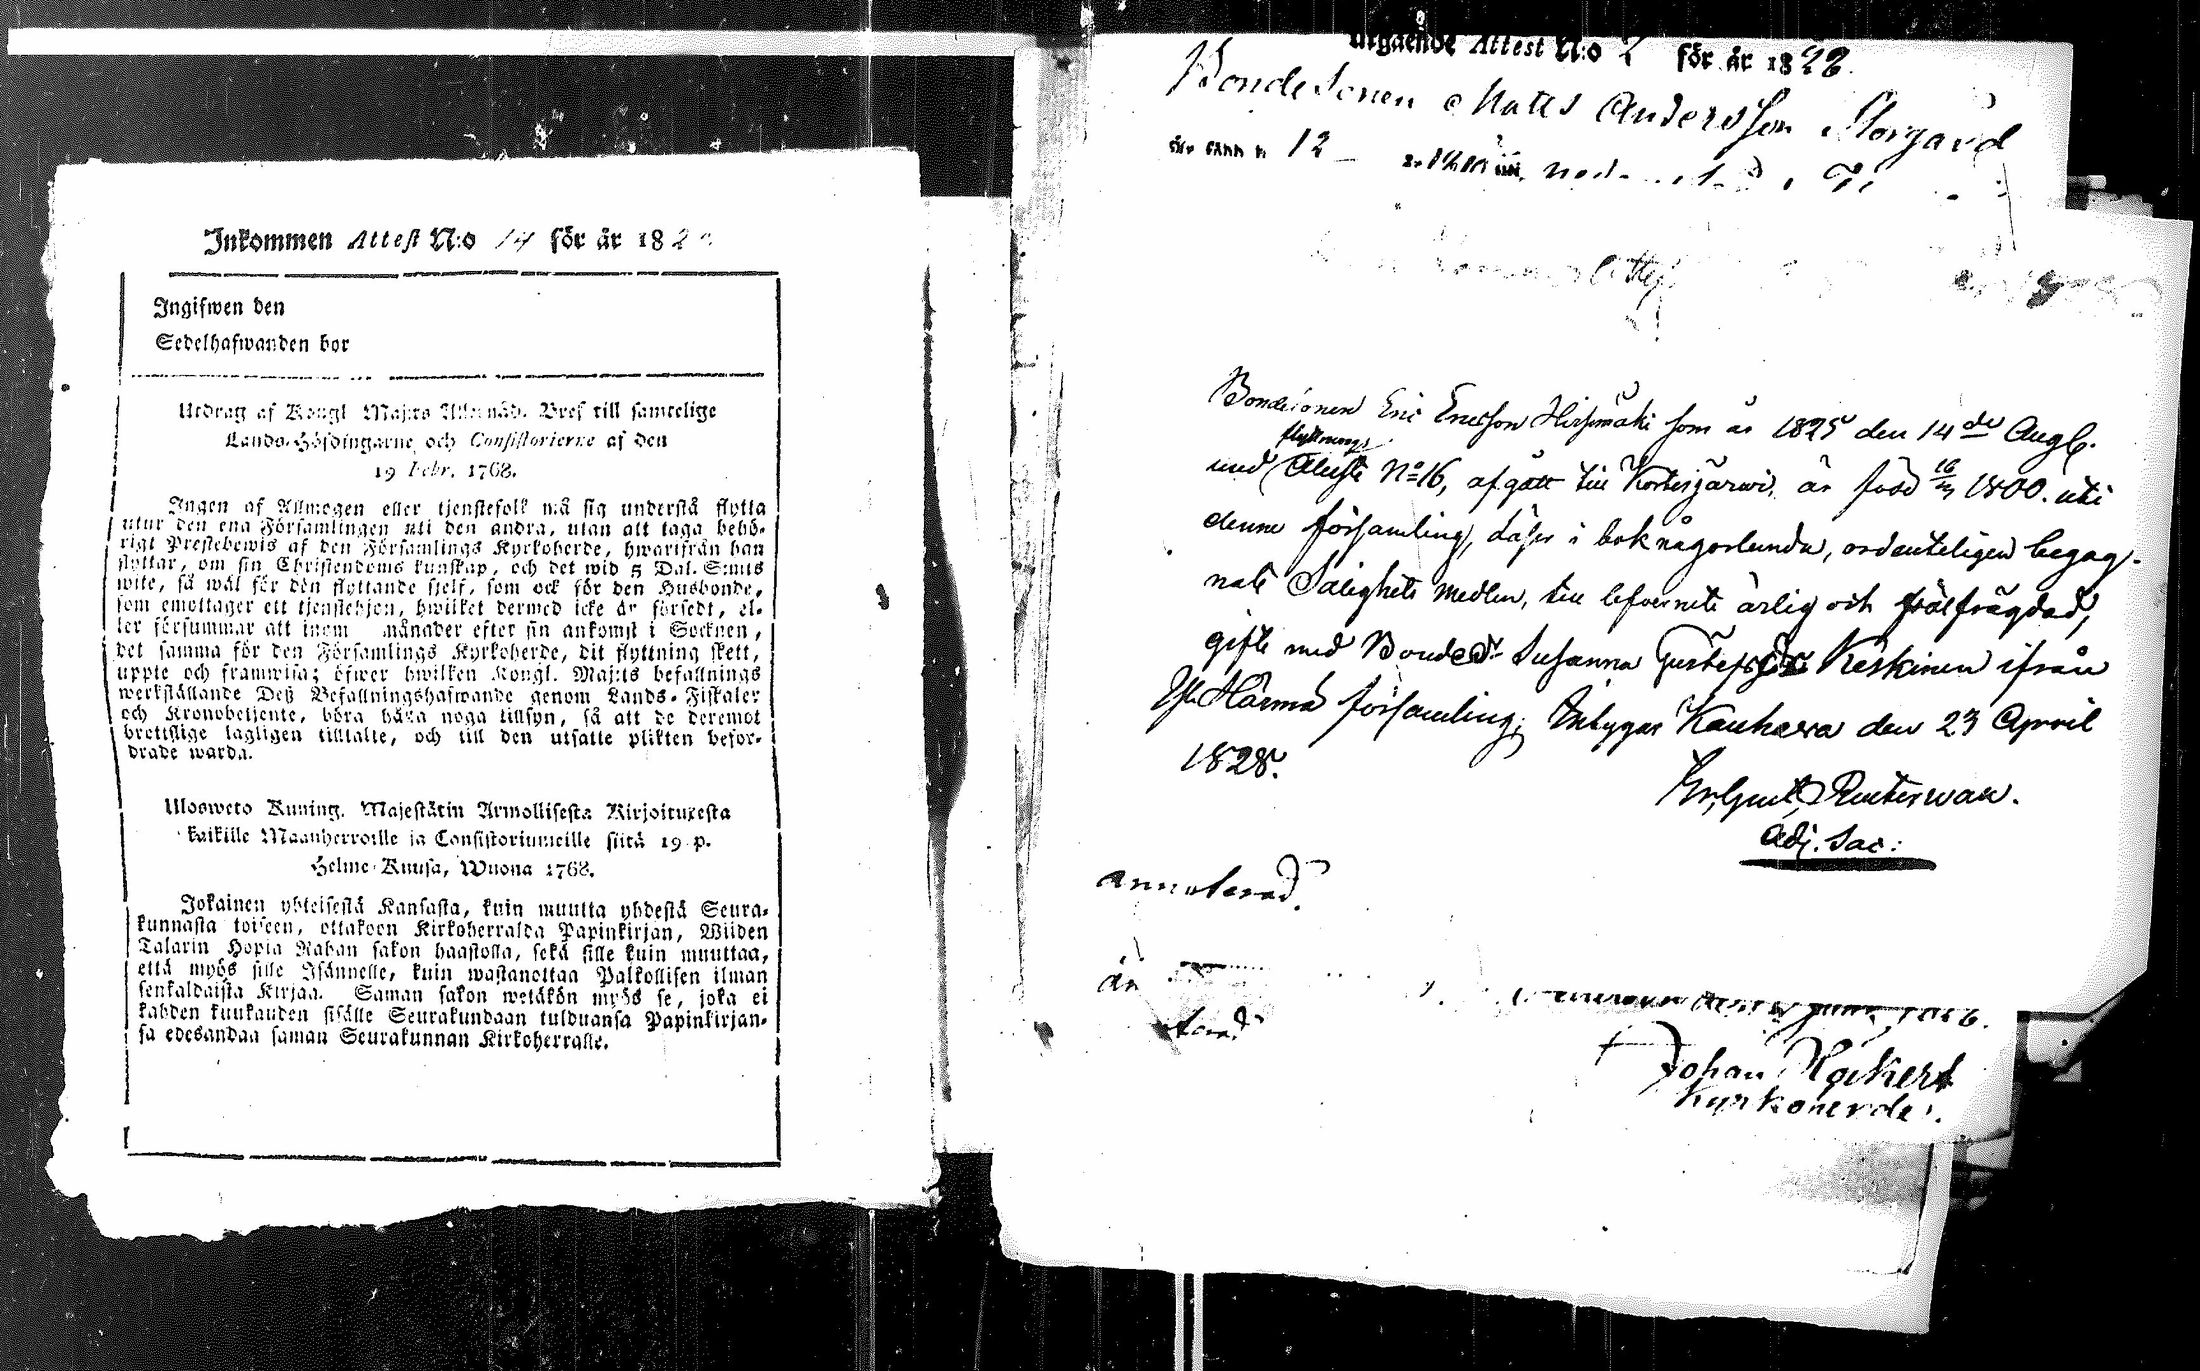 Inkommen Attest N:o 14 för år 182
Ingifwen den
Sedelhafwanden bor
Utdrag af Kongl Maj:ts Allernåd. Bref till samtelige
Lands-Höfdingarne och Consistorierne af den
19 Febr. 1768.
Ingen af Allmogen eller tjenstefolk må sig understå flytta
utur den ena Församlingen uti den andra, utan att taga behö-
rigt Prestebewis af den Församlings Kyrkoherde, hwarifrån han
flyttar, om sin Christendoms kunskap, och det wid 5 Dal. S:mts
wite, så wäl för den flyttande sjelf, som ock för den Husbonde,
som emottager ett tjenstehjon, hwilket dermed icke är försedt, el-
ler försummar att inom månader efter sin ankomst i Socknen,
det samma för den Församlings Kyrkoherde, dit flyttning skett,
uppte och framwisa; öfwer hwilken Kongl. Maj:ts befallnings
werkställande Deß Befallningshafwande genom Lands-Fiskaler
och Kronobetjente, böra hafwa noga tillsyn, så att de deremot
brottslige lagligen tilltalte, och till den utsatte plikten befor-
drade warda.
Ulosweto Kuning. Majestätin Armollisesta Kirjoituxesta
kaikille Maanherroille ja Consistoriumeille siitä 19 p.
Helme-Kuusa, Wuona 1768.
Jokainen yhteisestä Kansasta, kuin muutta yhdestä Seura-
kunnasta toiseen, ottakoon Kirkoherralda Papinkirjan, Wiiden
Talarin Hopia Rahan sakon haastolla, sekä sille kuin muuttaa,
että myös sille Isännelle, kuin wastanottaa Palkollisen ilman
senkaldaista Kirjaa. Saman sakon wetäkön myös se, joka ei
kahden kuukauden sisälle Seurakundaan tulduansa Papinkirjan-
sa edesandaa saman Seurakunnan Kirkoherralle.
Utgående Attest N:o 2 för år 1828.
Bondesonen Matts Andersson Storgård
12
Attest
Bondesonen Eric Ericsson Hirsimäki som år 1825 den 14de Aug.
flyttnings
med Attest No 16, afgått till Kortesjärwi, är född 1800. uti
denne församling, läser i bok någorlunda, ordenteligen begag-
nat Salighets medlen, till lefwernet ärlig och frälfrägdad,
gift med Bonded. Susanna Gustafsdr Keskinen ifrån
Yli Härmä församling; Intygar Kauhawa den 23 April
1828.
Er. Gust. Reuterwan.
Adj. Sac:
annoterad.
än
Johan Höckert
Kyrkoherde.